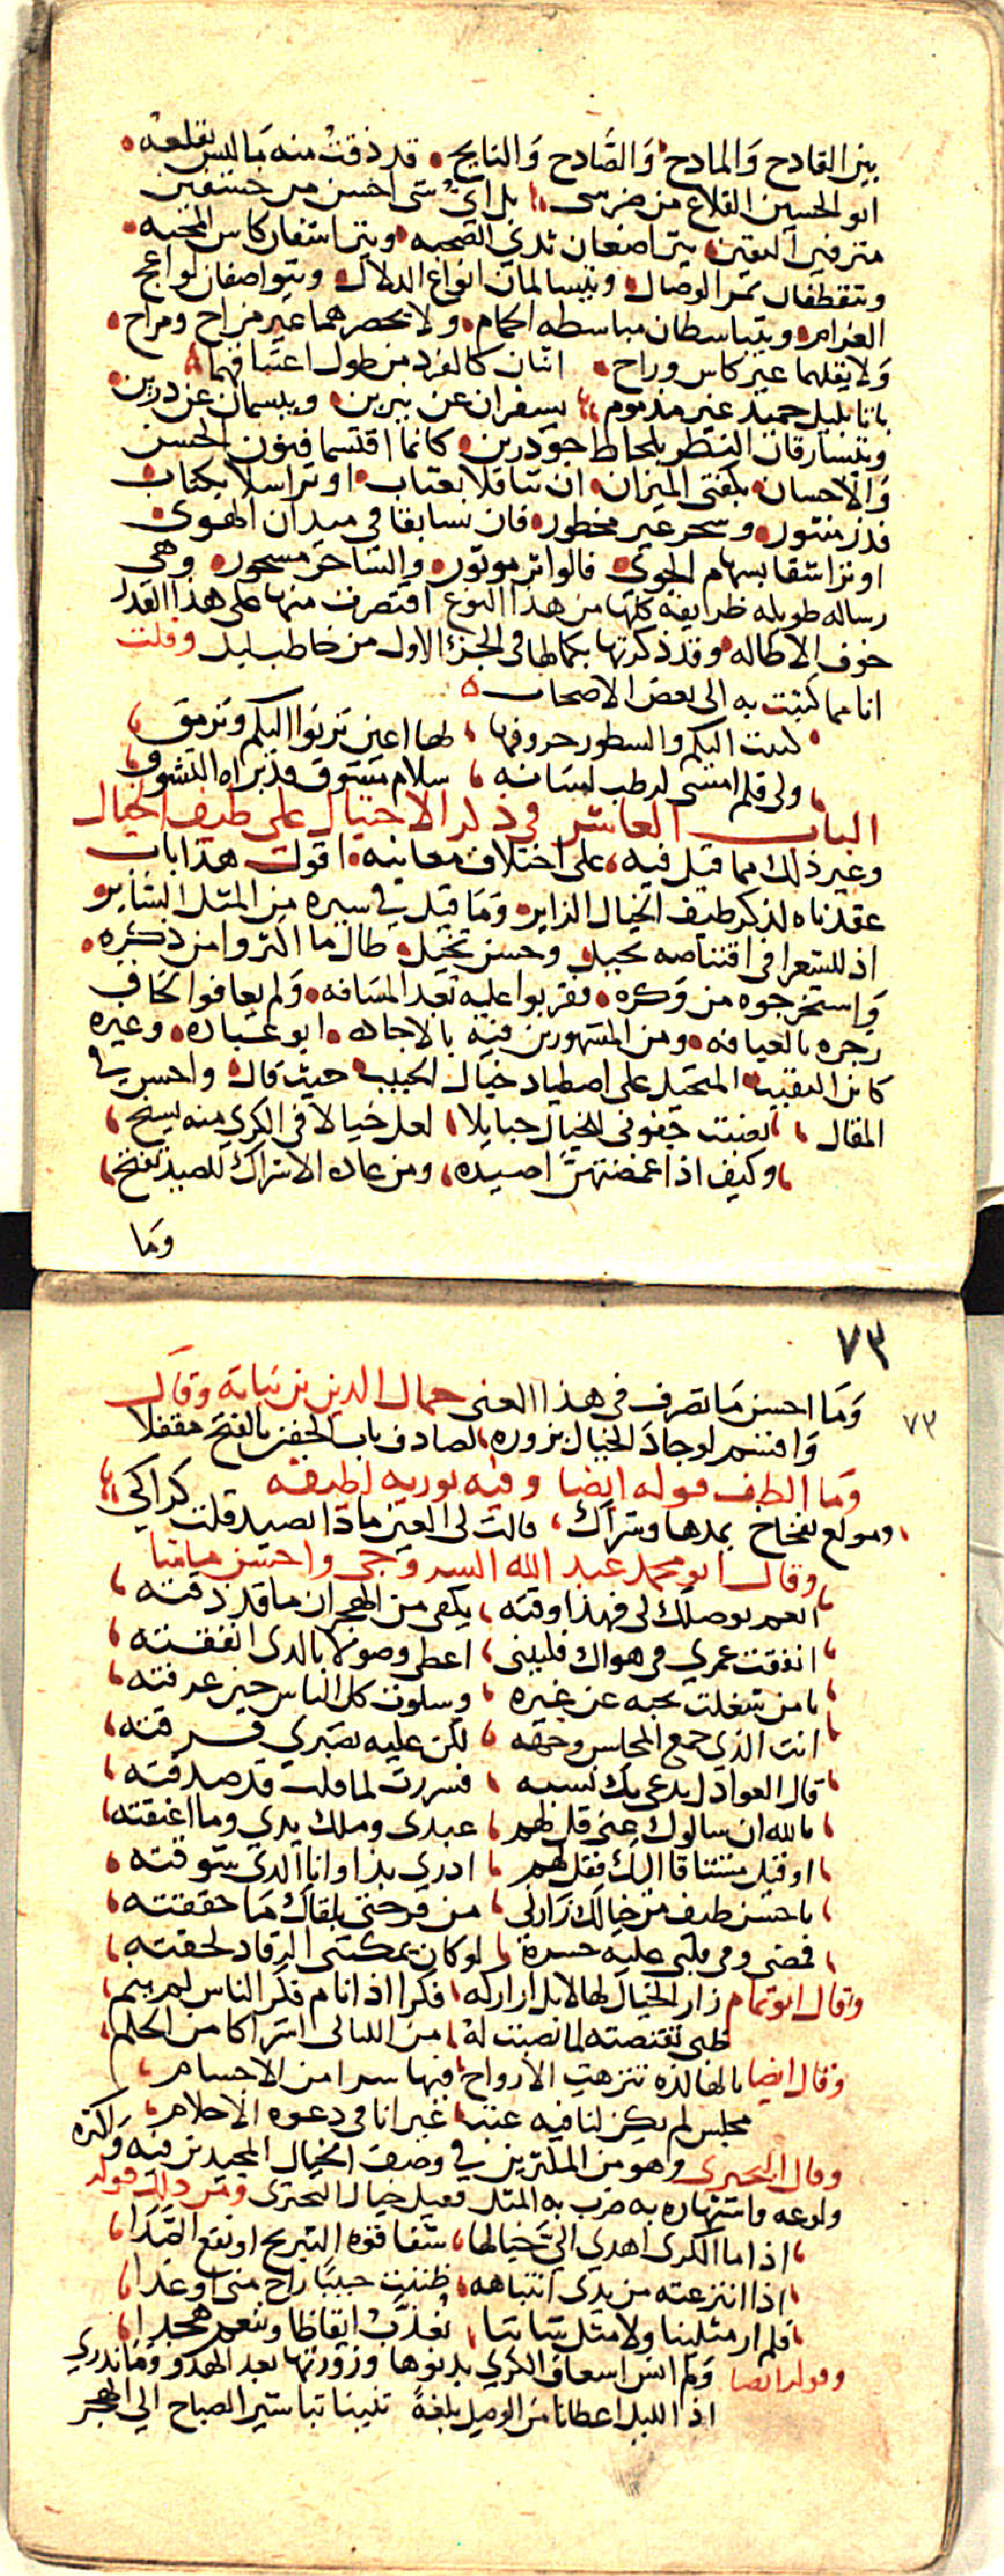 بين القادح والمادح والصادح والنابح قد ذقت منه ما ليس يقلعه
ابو الحسين القلاع من ضرسى بل اي شى احسن من
متزفين اليقين يتراضعان ثدي الصحبه ويتراشفان كاس المحبه
ويتقطفان ثمر الوصال ويتسالمان انواع الدلال ويتواصفان لواعج
الغرام ويتباسطان مباسطه الحمام ولا يحصرهما غير مزاح ومراح
ولا يقلهما غير كاس وراح اثنان كالفرد من طول اعتناقهما
باتا بليل حميد غير مذموم يسفران عن نيرين ويبسمان عن درين
ويتسارقان النظر بلحاظ جودرين كانما اقتسما فنون الحسن
والاحسان بكفتى الميزان ان تناقلا بعتاب او تراسلا بكتاب
فدر منثور وسحر غير محظور فان تسابقا في ميدان الهوى
او تراشقا بسهام الجوى فالواتر موتور والساحر مسحور وهى
رساله طويله ظريفه كلها من هذا النوع اقتصرت منها على هذا القدر
خوف الاطاله وقد ذكرتها بكمالها فى الجزء الاول من حاطب ليل وقلت
انا مما كتبت به الى بعض الاصحاب
كتبت اليكم والسطور حروفها لها اعين ترنوا اليكم وترمق
ولى قلم امشى لرطب لسانه سلام مشوق قد براه التشوق
الباب العاشر فى ذكر الاحتيال على طيف الخيال
وغير ذلك مما قيل فيه على اختلاف معانيه اقول هذا باب
عقدناه لذكر طيف الخيال الزاير وما قيل في سيره من المثل الساير
اذ للشعرا فى اقتناصه تحيل وحسن تخيل طال ما اكثروا من ذكره
واستخرجوه من وكره فقربوا عليه بعد المسافه ولم يعافوا كاف
زجره بالعيافه ومن المشهورين فيه بالاجاده ابو عباده وغيره
كابن النقيب المتحيل على اصطياد خيال الحبيب حيث قال واحسن فى
المقال نصبت جفونى للخيال حبايلا لعل خيالا فى الكرى منه يسنح
وكيف اذا غمضتهن اصيده ومن عاده الاشراك للصيد تفتح
وما
٧٣
٧٣
وما احسن ما تصرف فى هذا المعنى جمال الدين بن نباته وقال
واقسم لو جاد الخيال بزوره لصادف باب الجفن بالفتح مقفلا
وما الطف قوله ايضا وفيه توريه لطيفه
ومولع بفخاخ يمدها وشراك قالت لى العين ماذا يصيد قلت كراكي
وقال ابو محمد عبد الله السروجى واحسن ما شا
انعم بوصلك لى فهذا وقته يكفى من الهجران ما قد ذقته
انفقت عمري فى هواك فليتنى اعطى وصولا بالدى انفقته
يا من شغلت بحبه عن غيره وسلوت كل الناس حين عرفته
انت الذي جمع المحاسن وجهه لكن عليه تصبري فرقته
قال العوادل يدعى بك نسبه فسررت لما قلت قد صدقته
بالله ان سالوك عنى قل لهم عبدى وملك يدي وما اعتقته
او قيل مشتاقا اليك فقل لهم ادري بذا وانا الدي شوقته
يا حسن طيف من خيالك زارنى من فرحتى بلقاك ما حققته
فمضى وفى قلبى عليه حسرة لو كان يمكننى الرقاد لحقته
وقال ابو تمام زار الخيال لها لا بل ازاركه فكرا اذا نام فكر الناس لم ينم
ظبى تقنصته لما نصبت له من الليالى اشراكا من الحلم
وقال ايضا يا لها لذه تنزهت الارواح فيها سرا من الاجسام
مجلس لم يكن لنا فيه عيب غير انا فى دعوه الاحلام
وقال البحترى وهو من المكثرين في وصف الخيال المجيدين فيه ولكثره
ولوعه واشتهاره به ضرب به المثل فقيل خيال البحترى ومن ذلك قوله
اذا ما الكرى اهدى الي خيالها شفا قربه التبريح او نقع الصدا
اذا انتزعته من يدى انتباهه ظننت حبيبا راح منى او غدا
فلم ار مثلينا ولا مثل شاننا نعذب ايقاظا وننعم هجدا
وقوله ايضا ولم انس اسعاف الكرى بدنوها وزورتها بعد الهدو وما ندري
اذا الليل اعطانا من الوصل بلغة ثنينا تباشير الصباح الي الهجر